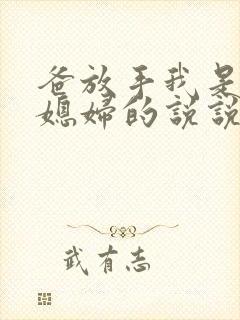 爸放手我是
媳妇的说说
武有志